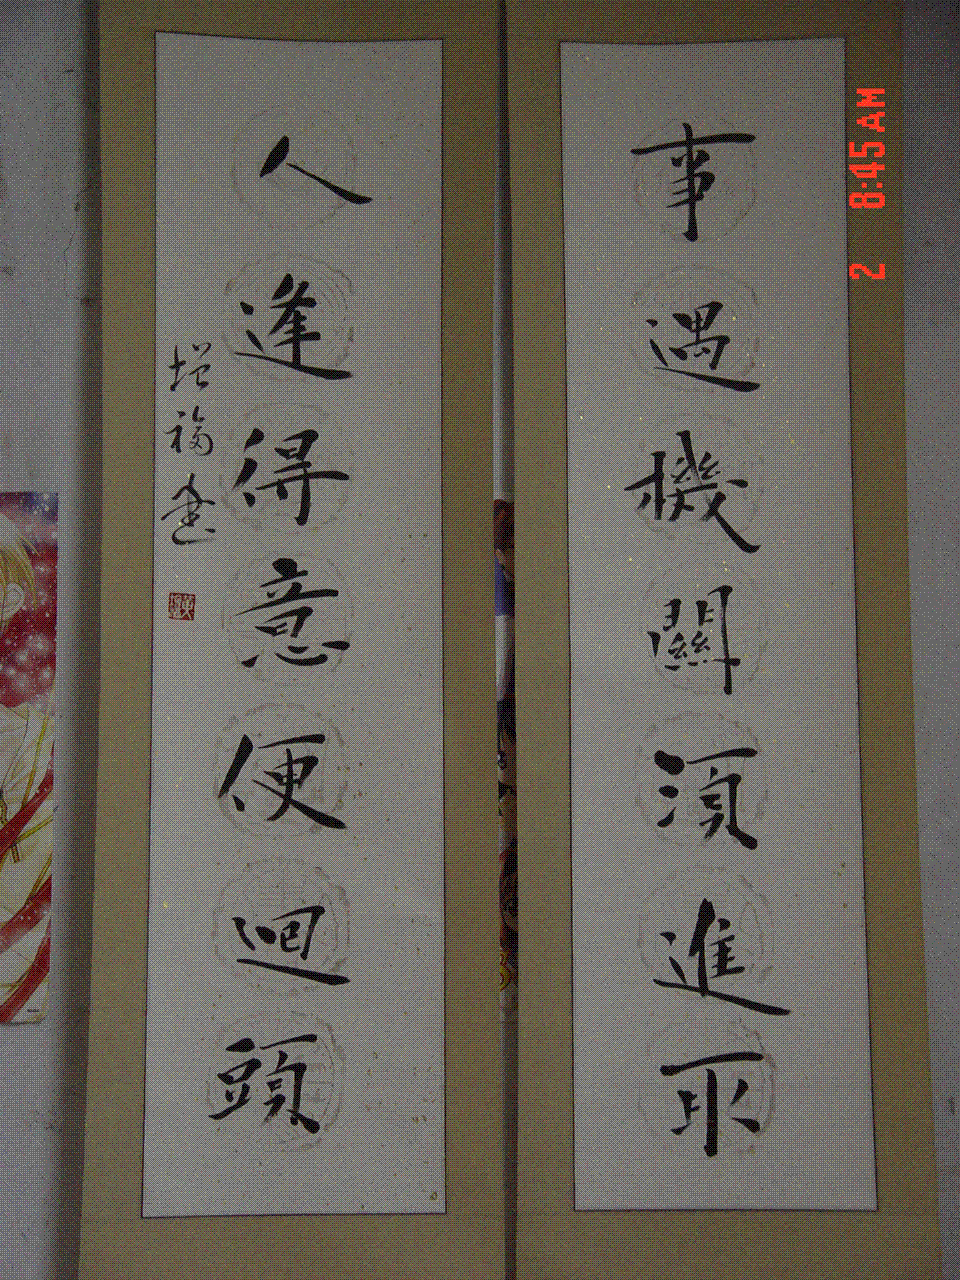 事遇機關須進取
人逢得意便迴頭
增福書
2 8:45 AM